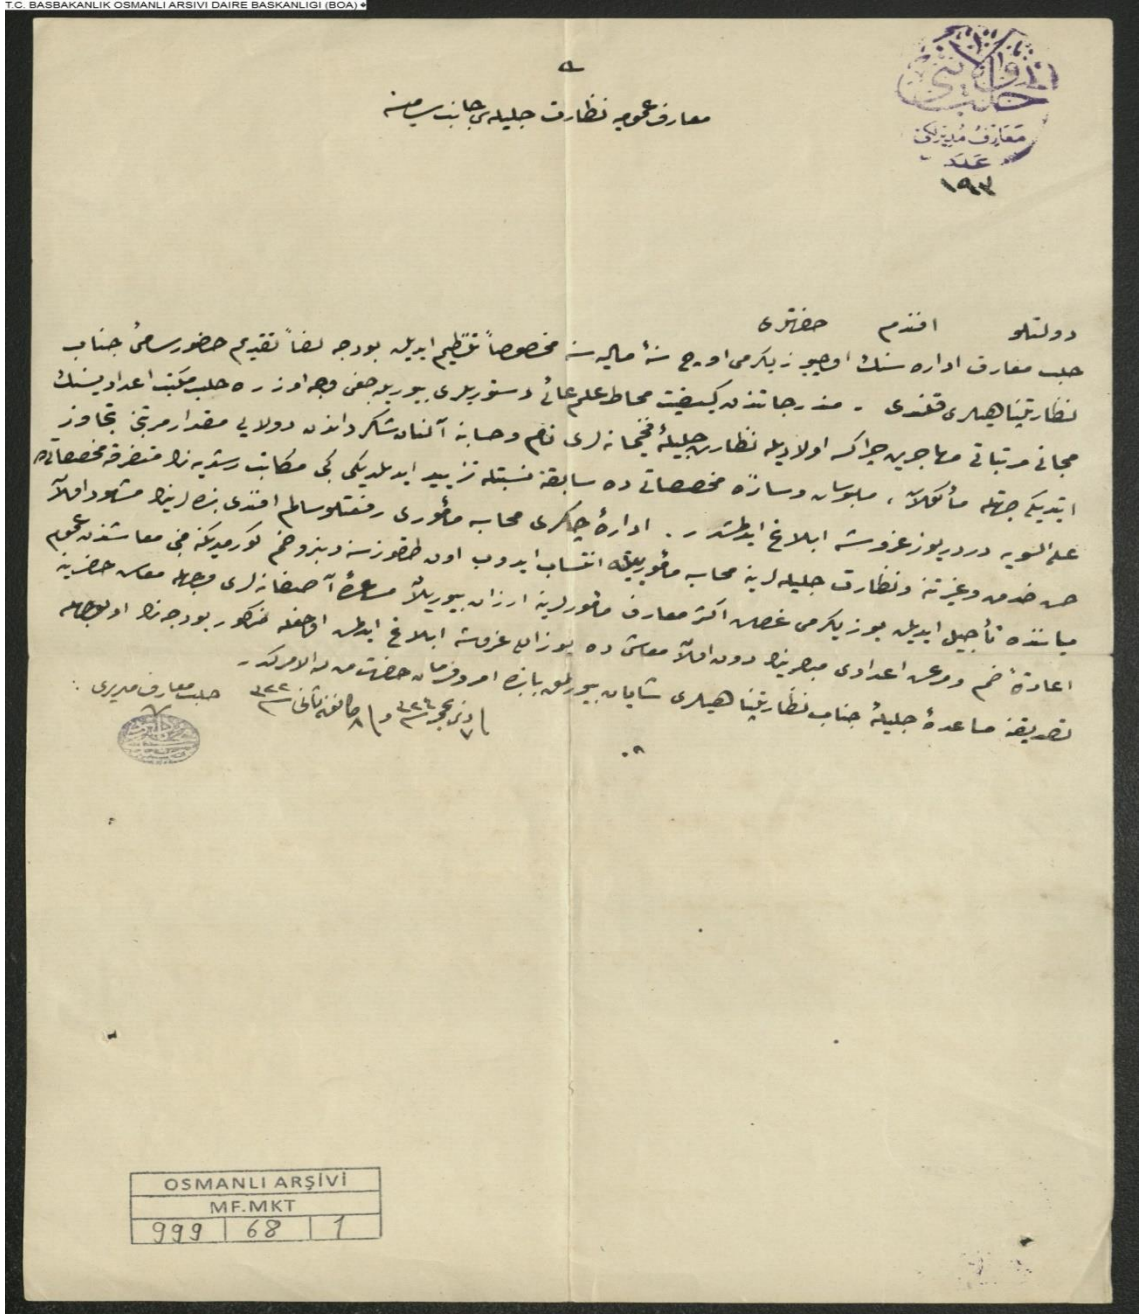 T.C. BASBAKANLIK OSMANLI ARSIVI DAIRE BASKANLIGI (BOA)
حلب ولايتى
معارف مديرلكى
عدد
١٩٣
معارف عموميه نظارت جليله‌سى جانب سامیسنه
دولتلو افندم حضرتلرى
حلب معارف اداره سنك اوچيوز يكرمى اوچ سنهٔ ماليه سنه مخصوصاً تنظيم ايديلن بودجه لفاً تقديم حضور سامئ جناب
نظارتپناهيلرى قلندى . مندرجاتندن كيفيت محاط علم عالئ دستوريلرى بيوريله‌جغى وجه اوزره حلب مكتب اعداديسنك
مجانى مرتباتى مهاجرين چراكسه اولاديله نظارت جليلهٔ فخيمانه لرى نام وحسابنه آلنان شاكرداندن دولايى مقدار مرتبى تجاوز
ايتديكى جهتله مأكولات ، ملبوسات وسائره مخصصاتى ده سابقنه نسبتله تزييد ايديلديكى كبى مكاتب رشديه نك متفرقه مخصصاتى ده
على السويه دردر يوز غروشه ابلاغ ايدلمشدر . ادارهٔ چاكرى محاسبه مأمورى رفعتلو سالم افندى بنده لرينك مشهود اولان
حسن خدمت وغيرتنه ونظارت جليله لرينه محاسبه مأموريتله انتساب ايدوب اون طقوز سنه دنبرو ضم كورمديكنه مبنى معاشندن عموم
مياننده تأجيل ايديلن يوز يكرمى غروشك اكثر معارف مأمورلرينه ارزان بيوريلان مساعدهٔ آصفانه لرى وجهله معاش حضرينه
اعادةً ضم ومرعش اعدادى مبصرينك دون اولان معاشى ده يوز اللى غروشه ابلاغ ايدلمش اولمغله مذكور بودجه نك اولوجهله
تصديقنه مساعدهٔ جليلهٔ جناب نظارتپناهيلرى شايان بيورلمق بابنده امر وفرمان حضرت من له الامركدر .
حلب معارف مديرى
OSMANLI ARŞİVİ
MF.MKT
999 68 1